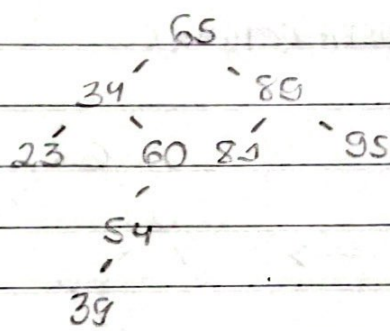 65
34 89
23 60 81 95
54
39